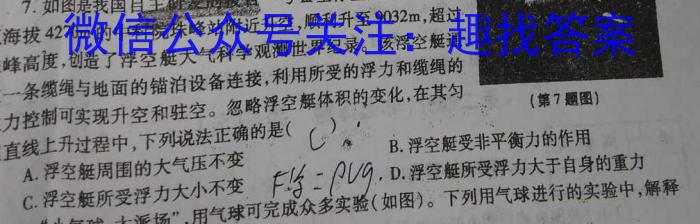 7. 如图是我国自主
海拔42 顺利升至9032m,超过
微信公众号关注：趣找答案
峰高度,创造了浮空艇大气科学观测世界 该浮空艇
一条缆绳与地面的锚泊设备连接,利用所受的浮力和缆绳的
力控制可实现升空和驻空。忽略浮空艇体积的变化,在其匀
(第7题图)
直线上升过程中,下列说法正确的是( C )
A. 浮空艇周围的大气压不变
B. 浮空艇受非平衡力的作用
C. 浮空艇所受浮力大小不变
F浮=ρVg.
D. 浮空艇所受浮力大于自身的重力
大派场”,用气球可完成众多实验(如图)。下列用气球进行的实验中,解释